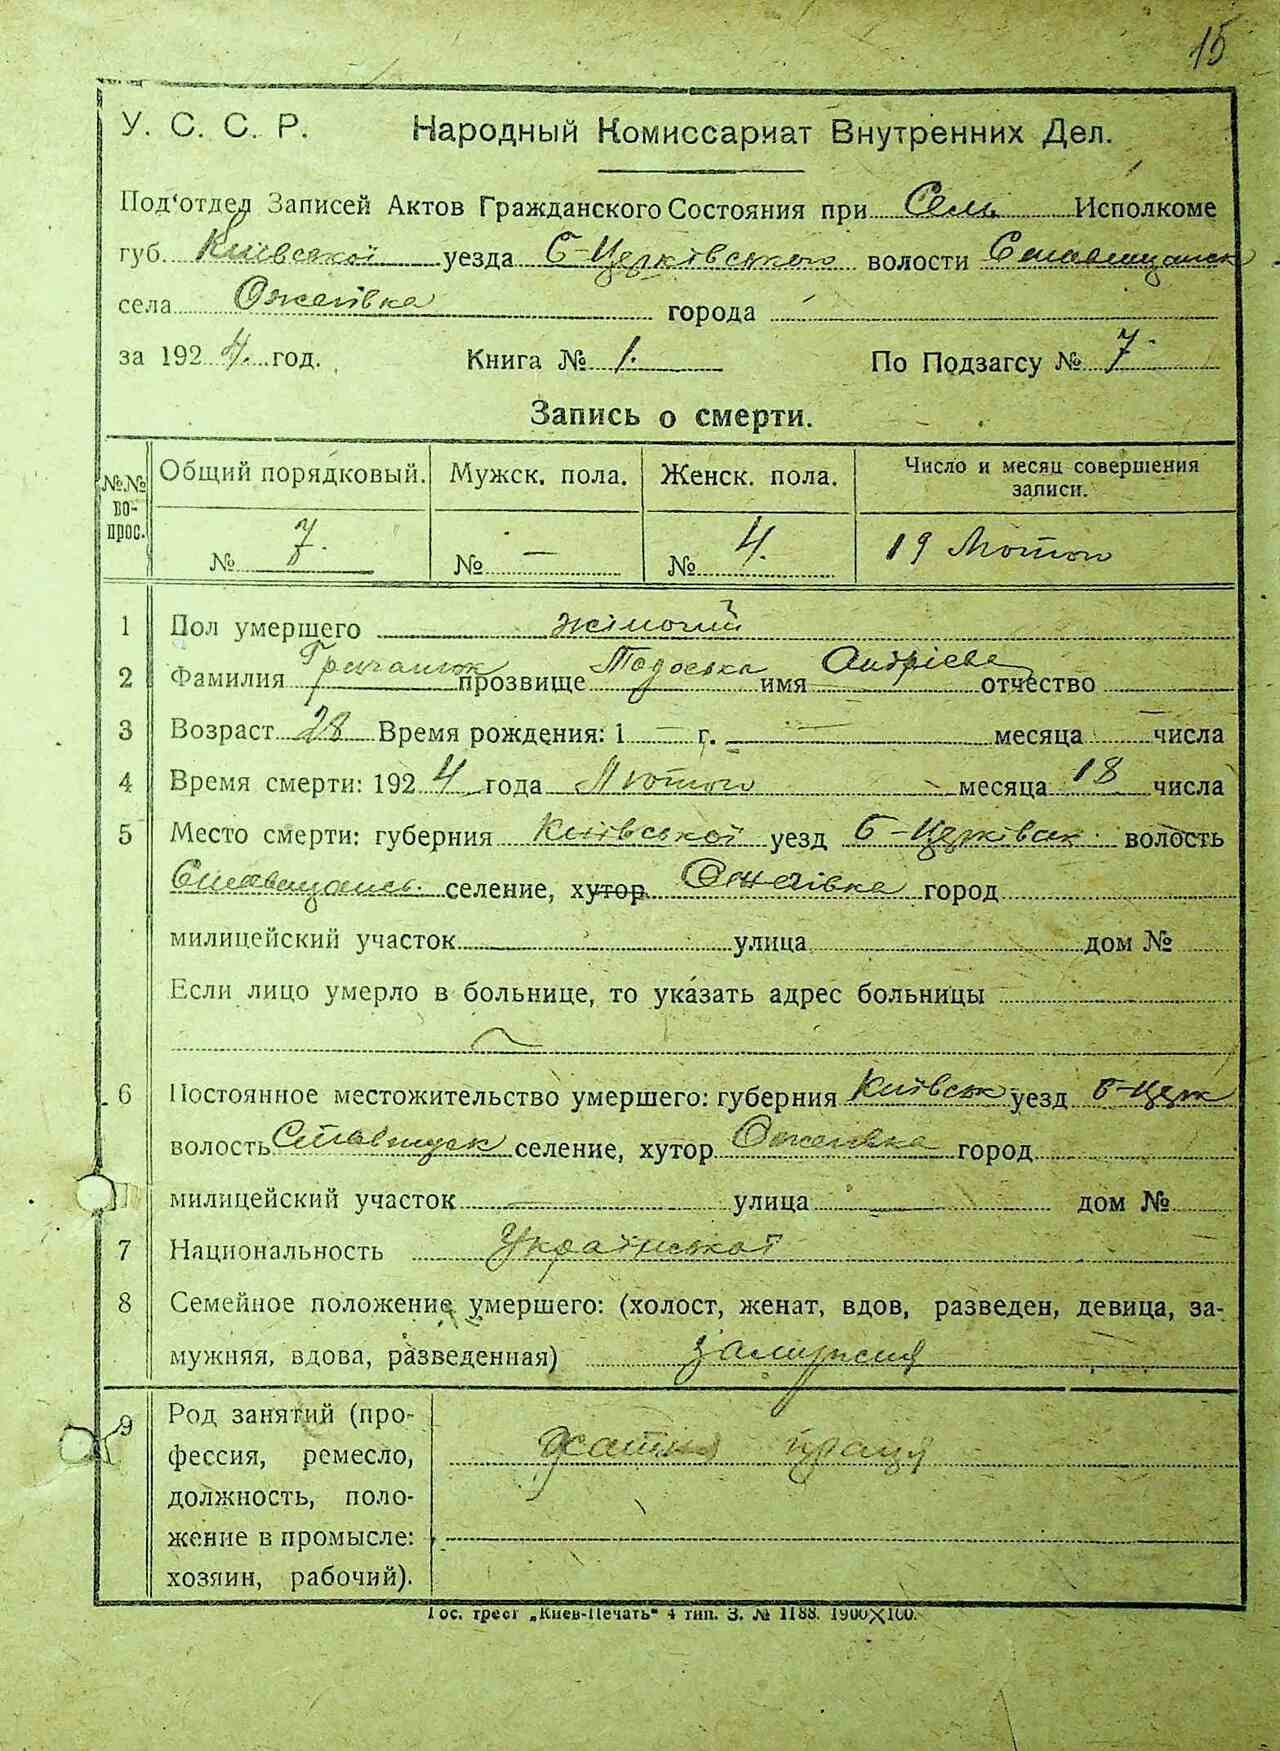 15
У. С. С. Р. Народный Комиссариат Внутренних Дел.
Под'отдел Записей Актов Гражданского Состояния при Сель Исполкоме
губ. Київської уезда Б-Церківського волости Ставищанськ
села Ожегівка города
за 1924 год. Книга № 1. По Подзагсу № 7.
Запись о смерти.
№№ во-прос. Общий порядковый. Мужск. пола. Женск. пола. Число и месяц совершения записи.
№ 7. № — № 4. 19 Лютого
1 Пол умершего жіночий
2 Фамилия прозвище Тодоська имя Андрієва отчество
3 Возраст 28 Время рождения: 1 — г. — месяца — числа
4 Время смерти: 1924 года Лютого месяца 18 числа
5 Место смерти: губерния Київської уезд Б-Церківськ. волость
Ставищанськ. селение, хутор Ожегівка город
милицейский участок улица дом №
Если лицо умерло в больнице, то указать адрес больницы
6 Постоянное местожительство умершего: губерния Київськ уезд Б-Церк
волость Ставищск селение, хутор Ожегівка город
милицейский участок улица дом №
7 Национальность Української
8 Семейное положение умершего: (холост, женат, вдов, разведен, девица, за-
мужняя, вдова, разведенная) замужня
9 Род занятий (про-
фессия, ремесло, хатня праця
должность, поло-
жение в промысле:
хозяин, рабочий).
Гос. трест „Киев-Печать" 4 тип. З. № 1188. 1900×100.